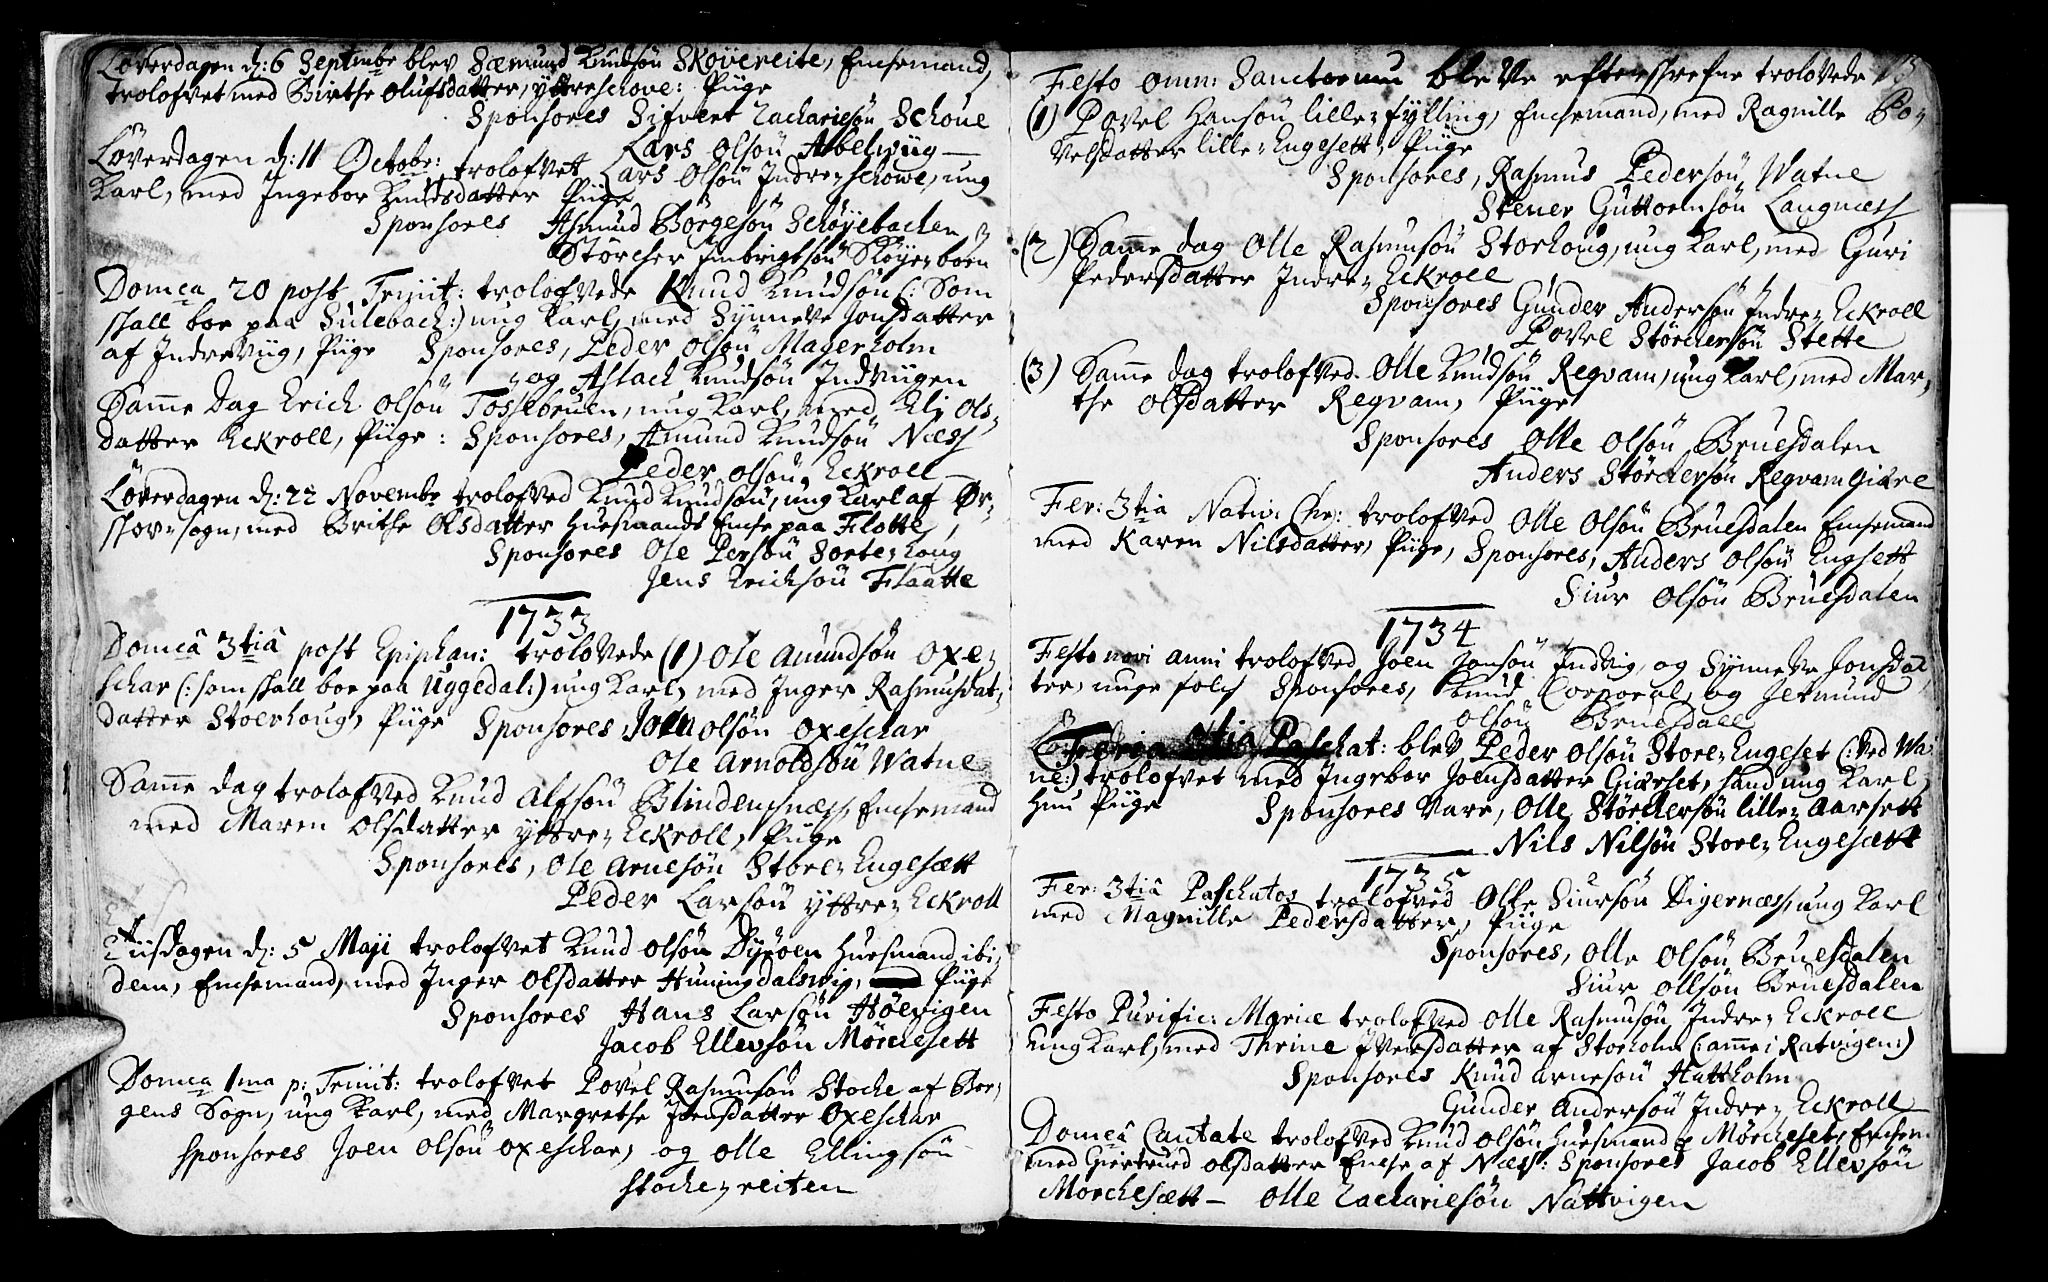 Löverdagen d: 6 Septembr blev Sæmund Knudsön Skövereite, Enchemand,
trolofvet med Birthe Olufsdatter, yttreschove: Piige
Sponsores Sifvert Zachariesön Schoue
Lars Olsön Abelwiig
Löverdagen d: 11 Octobr: trolofvet Lars Olsön Indre-schowe, ung
Karl, med Ingebor Knudsdatter Piige
Sponsores Asmund Börgesön Schöyebachen
Störcher Embrigtsön Sköye-boen
Domca 20 post Trinit: trolofvede Knud Knudsön (: som
skall boe paa Sulebach:) ung Karl, med Synneve Jonsdatter
af Indreviig, Piige Sponsores, Peder Olsön Magerholm
og Aslach Knudsön Indviigen
Samme Dag Erich Olsön Tosseberuen, ung Karl, med Eli Ols-
datter Eckroll, Piige: Sponsores, Amund Knudsön Næss
Peder Olsön Eckroll
Löverdagen d: 22 Novembr trolofved Knud Knudsön, ung Karl af Ør-
skov-sogn, med Brithe Olsdatter Huesmands Enche paa Flotte,
Sponsores Ole Persön Sorte-houg
Jens Erichsön Flaatte
1733
Domcâ 3tiâ post Epiphan: trolovede (1) Ole Amundsön Oxe-
schar (: som skall boe paa Uggedal:) ung Karl, med Inger Rasmusdat-
datter Stoerhoug, Piige Sponsores Joen Olsön Oxeschar
Ole Arnoldsön Watne
Samme dag trolofved Knud Alfsön Blindemsnæss, Enchemand
med Maren Olsdatter yttre-Eckroll, Piige
Sponsores, Ole Arnesön Store-Engesætt
Peder Larsön yttre-Eckroll
Tiisdagen d: 5 Maji trolofvet Knud Olsön Dyröen Huesmand ibi-
dem, Enchemand, med Inger Olsdatter Huningdalswig, Piige
Sponsores Hans Larsön Höevigen
Jacob Ellevsön Mörchesett
Domca 1ma p: Trinit: trolofvet Povel Rasmusön Stoche af Bor-
gens Sogn, ung Karl, med Margrethe Joensdatter Oxeschar
Sponsores Joen Olsön Oxeschar, og Olle Ellingsön
Stoche-reiten
Festo Omn: Sanctorum bleve efterskrefne trolovede
(1) Povel Hansön lille-fylling, Enchemand, med Ragnille Po-
velsdatter lille-Engesett, Piige
Sponsores, Rasmus Pedersön Watne
Stener Guttormsön Langnæss
(2) Samme dag Olle Rasmusön Storhoug, ung Karl, med Guri
Pedersdatter Indre-Eckroll
Sponsores Gunder Andersön Indre-Eckroll
Povel Störchersön Stette
(3) Samme dag trolofved Olle Knudsön Regvam, ung Karl, med Mar-
the Olsdatter Regvam, Piige
Sponsores Olle Olsön Bruesdalen
Anders Störchersön Regvam Giære
Fer: 3tia Nativ: Chr: trolofved Olle Olsön Bruesdalen Enchemand
med Karen Nilsdatter, Piige, Sponsores, Anders Olsön Engsett
Siur Olsön Bruesdalen
1734
Festo novi anni trolofved Joen Jonsön Indvig, og Synneve Jonsdat-
ter, unge folch Sponsores, Knud Corporal, og Jetmund
Olsön Bruesdall
Feria 3tia Paschat: blev Peder Olsön Store-Engeset (: ved Wa-
ne:) trolofvet med Ingebor Joensdatter Giærset, hand ung Karl,
hun Piige Sponsores vare, Olle Störchersön lille-Aarsett
Nils Nilsön Store-Engesætt
1735
Fer: 3tiâ Paschatos trolofved Olle Siursön Digernæss, ung Karl
med Magnille Pedersdatter, Piige
Sponsores, Olle Olsön Bruesdalen
Siur Ollsön Bruesdalen
Festo Purific: Mariæ trolofved Olle Rasmusön Indre-Eckroll
ung Karl, med Thrine Iversdatter af Storholm (: amme i Ratvigen:)
Sponsores Knud Arnesön Hattholm
Gunder Andersön Indre-Eckroll
Domcâ Cantate trolofved Knud Olsön Huesmand p Mörcheset, Enchem
med Giertrued Olsdatter Enche af Næss: Sponsores Jacob Ellevsön
Mörchesætt - Olle Zachariesön Nattvigen